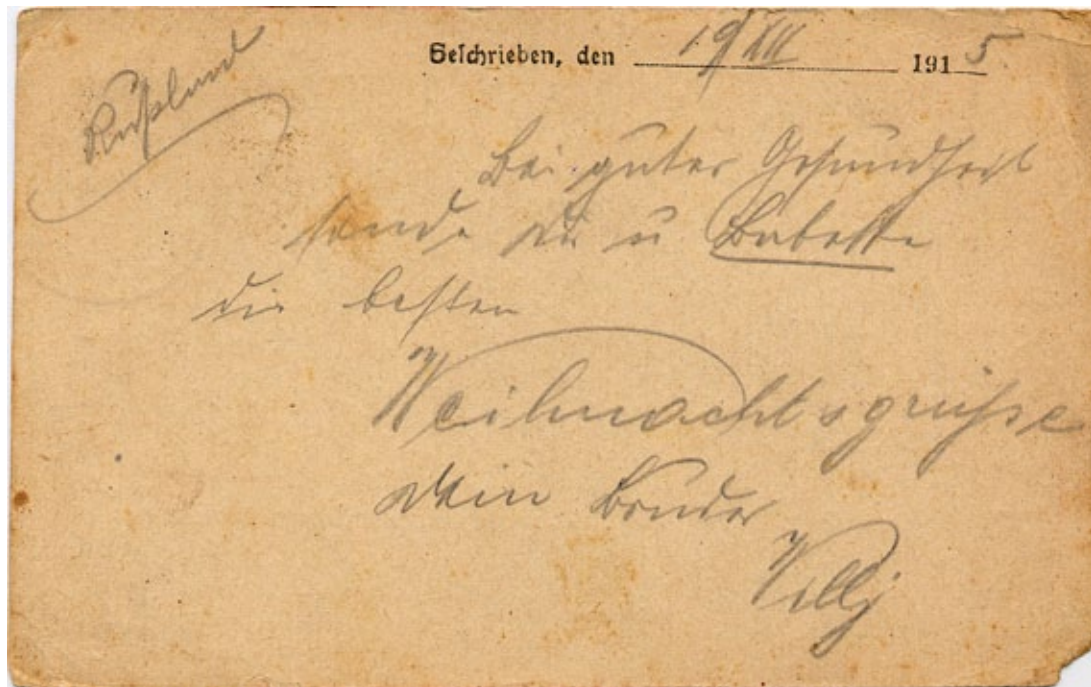 Rußland
Geschrieben, den 19/XII 1915
Bei guter Gesundheit
sende Dir u Babette
die besten
Weihnachtsgrüße
Dein Bruder
Willy